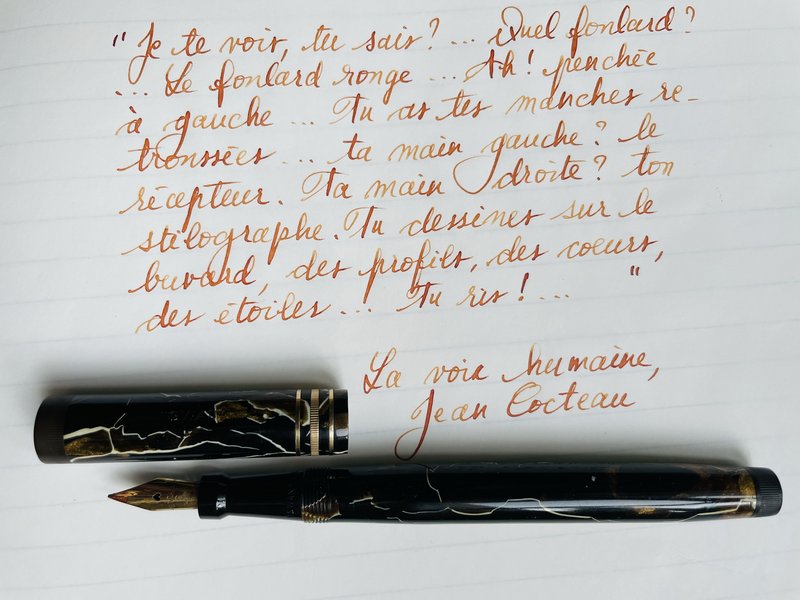 " Je te vois, tu sais? ... Quel foulard?
... Le foulard rouge ... Ah! penchée
à gauche ... Tu as tes manches re-
troussées ... ta main gauche? le
récepteur. Ta main droite? ton
stilographe. Tu dessines sur le
buvard, des profils, des coeurs,
des étoiles ... Tu ris! ... "
La voix humaine,
Jean Cocteau